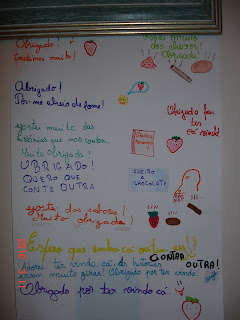 Obrigado!
Gostámos muito!
Gostei muito
dos cheiros!
Obrigada!
Obrigado!
Pôr-me cheio de fome!
Obrigado por
ter
cá vindo!
gostei muito das
histórias que nos contou.
Muito Obrigado!
OBRIGADO!
QUERO QUE
CONTE OUTRA
CHEIRO A
CHOCOLATE
gostei dos sabores!
Muito obrigada!
Espero que venha cá outra vez
CONTAR
OUTRA!
Adorei ter vindo cá. As histórias
eram muito giras! Obrigado por ter vindo!
Obrigado por ter vindo cá.